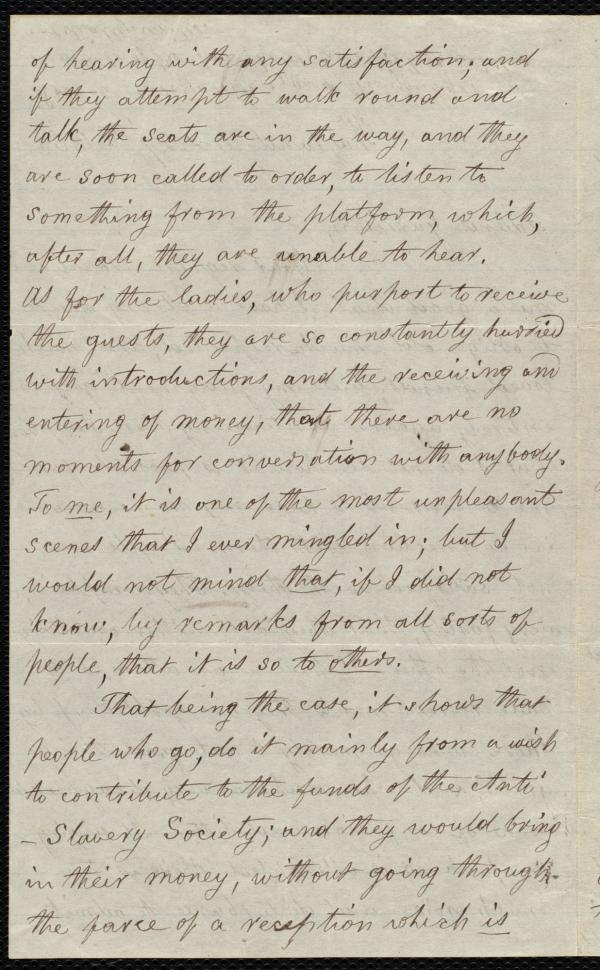 of hearing with any satisfaction; and
if they attempt to walk round and
talk, the seats are in the way, and they
are soon called to order, to listen to
something from the platform, which,
after all, they are unable to hear.
As for the ladies, who purport to receive
the guests, they are so constantly hurried
with introductions, and the receiving and
entering of money, that there are no
moments for conversation with anybody.
To me, it is one of the most unpleasant
scenes that I ever mingled in; but I
would not mind that, if I did not
know, by remarks from all sorts of
people, that it is so to others.
That being the case, it shows that
people who go, do it mainly from a wish
to contribute to the funds of the Anti
- Slavery Society; and they would bring
in their money, without going through
the farce of a reception which is